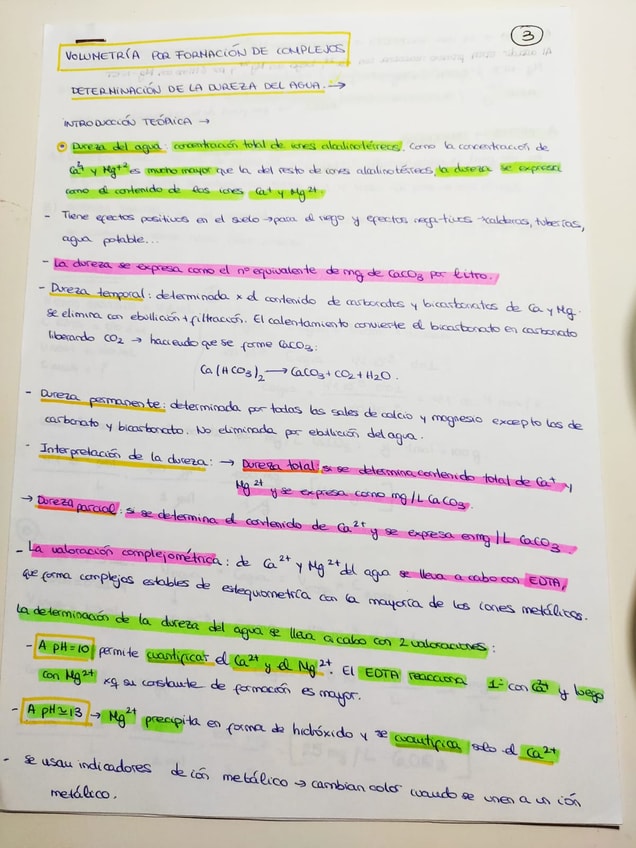 3
VOLUMETRÍA POR FORMACIÓN DE COMPLEJOS
DETERMINACIÓN DE LA DUREZA DEL AGUA. →
INTRODUCCIÓN TEÓRICA →
Dureza del agua: concentración total de iones alcalinotérreos. Como la concentración de
Ca²⁺ y Mg⁺² es mucho mayor que la del resto de iones alcalinotérreos, la dureza se expresa
como el contenido de los iones Ca⁺ y Mg²⁺.
- Tiene efectos positivos en el suelo → para el riego y efectos negativos → calderas, tuberías,
agua potable...
- La dureza se expresa como el nº equivalente de mg de CaCO₃ por litro.
- Dureza temporal: determinada x el contenido de carbonatos y bicarbonatos de Ca y Mg.
se elimina con ebullición + filtración. El calentamiento convierte el bicarbonato en carbonato
liberando CO₂ → haciendo que se forme CaCO₃:
Ca(HCO₃)₂ → CaCO₃ + CO₂ + H₂O.
- Dureza permanente: determinada por todas las sales de calcio y magnesio excepto las de
carbonato y bicarbonato. No eliminada por ebullición del agua.
- Interpretación de la dureza: → Dureza total: si se determina contenido total de Ca⁺ y
Mg²⁺ y se expresa como mg/L CaCO₃.
→ Dureza parcial: si se determina el contenido de Ca²⁺ y se expresa en mg/L CaCO₃.
- La valoración complejométrica: de Ca²⁺ y Mg²⁺ del agua se lleva a cabo con EDTA,
que forma complejos estables de estequiometría con la mayoría de los iones metálicos.
La determinación de la dureza del agua se lleva a cabo con 2 valoraciones:
- A pH=10 permite cuantificar el Ca²⁺ y el Mg²⁺. El EDTA reacciona 1º con Ca²⁺ y luego
con Mg²⁺ xq su constante de formación es mayor.
- A pH≃13 → Mg²⁺ precipita en forma de hidróxido y se cuantifica solo el Ca²⁺
- se usan indicadores de ión metálico → cambian color cuando se unen a un ión
metálico.